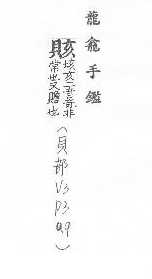 龍龕手鑑
賅
垓亥二音奇非
常也又贍也
(貝部 V3 P3 )